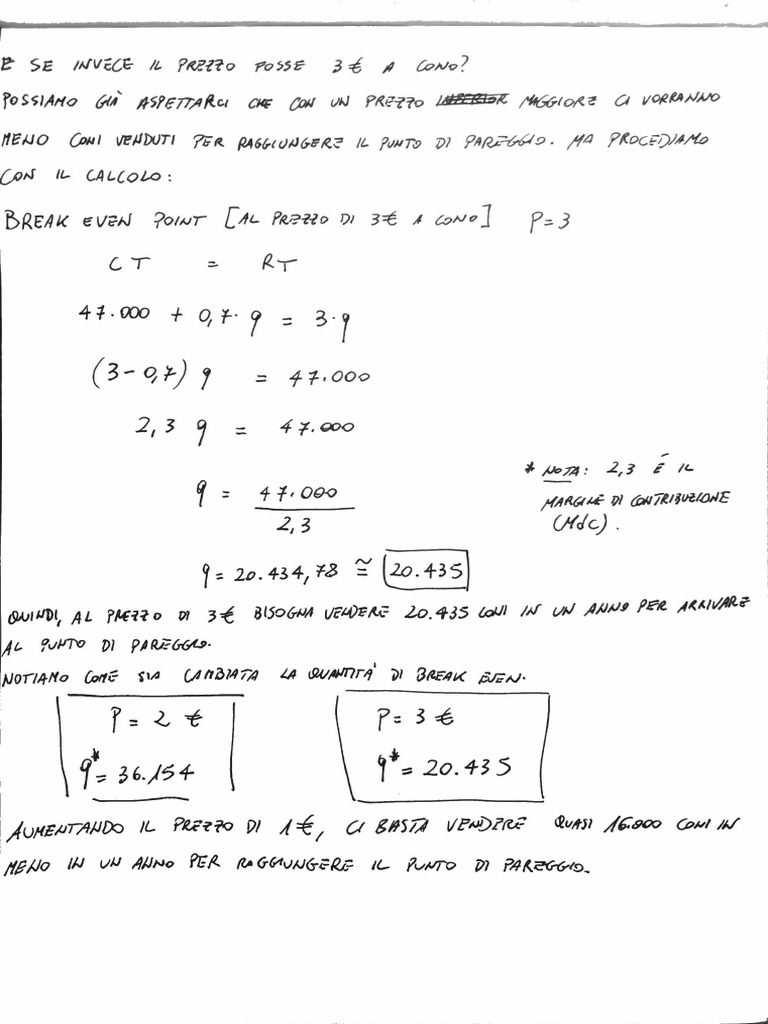 E SE INVECE IL PREZZO FOSSE 3€ A CONO?
POSSIAMO GIÀ ASPETTARCI CHE CON UN PREZZO INFERIOR MAGGIORE CI VORRANNO
MENO CONI VENDUTI PER RAGGIUNGERE IL PUNTO DI PAREGGIO. MA PROCEDIAMO
CON IL CALCOLO:
BREAK EVEN POINT [AL PREZZO DI 3€ A CONO] P=3
CT = RT
47.000 + 0,7·q = 3·q
(3-0,7) q = 47.000
2,3 q = 47.000
* NOTA: 2,3 É IL
MARGINE DI CONTRIBUZIONE
(MdC).
q = 47.000 / 2,3
q = 20.434,78 ≅ 20.435
QUINDI, AL PREZZO DI 3€ BISOGNA VENDERE 20.435 CONI IN UN ANNO PER ARRIVARE
AL PUNTO DI PAREGGIO.
NOTIAMO COME SIA CAMBIATA LA QUANTITA' DI BREAK EVEN.
P = 2 € P = 3 €
q* = 36.154 q* = 20.435
AUMENTANDO IL PREZZO DI 1€, CI BASTA VENDERE QUASI 16.000 CONI IN
MENO IN UN ANNO PER RAGGIUNGERE IL PUNTO DI PAREGGIO.